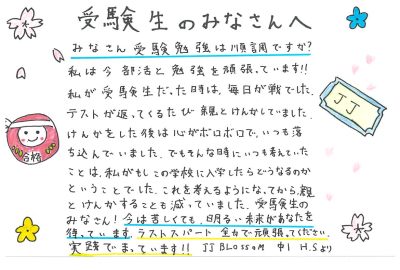 受験生のみなさんへ
みなさん受験勉強は順調ですか?
私は今部活と勉強を頑張っています!!
私が受験生だった時は、毎日が戦でした。
テストが返ってくるたび親とけんかしていました。
けんかをした後は心がボロボロで、いつも落
ち込んでいました。でもそんな時にいつも考えていた
ことは、私がもしこの学校に入学したらどうなるのか
ということでした。これを考えるようになってから、親
とけんかすることも減っていました。受験生の
みなさん!今は苦しくても、明るい未来があなたを
待っています。ラストスパート全力で頑張ってください。
実践でまっています!! JJ BLOSSOM 中1 H.Sより
合格
JJ